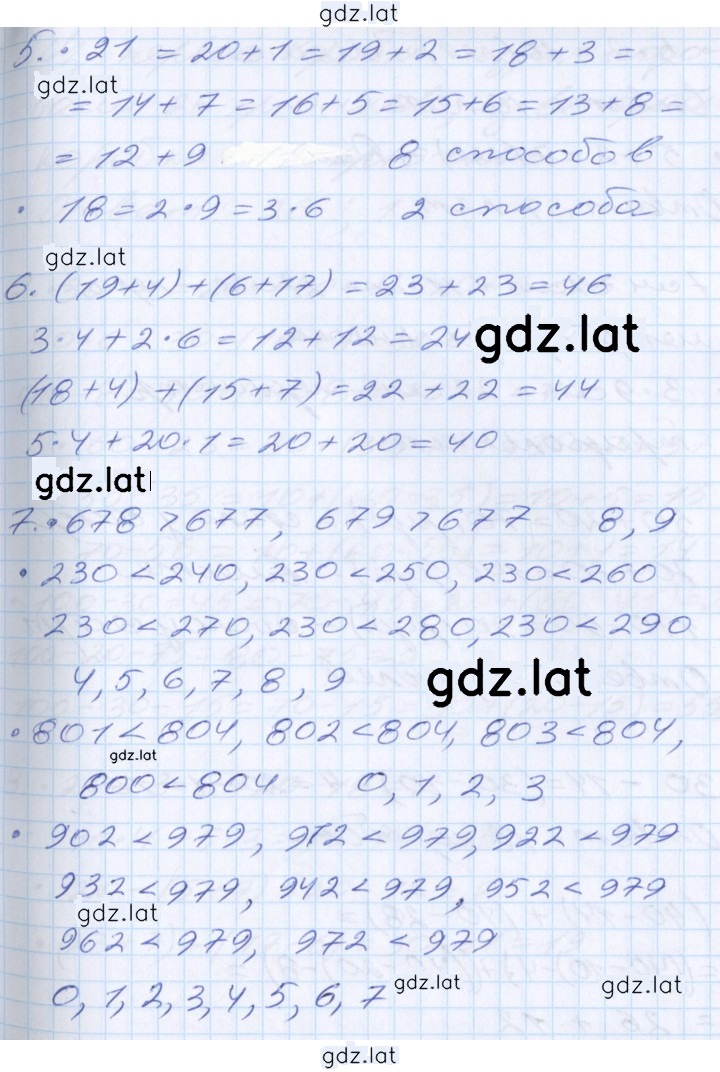 gdz.lat
5. • 21 = 20+1 = 19+2 = 18+3 =
gdz.lat
= 14+7 = 16+5 = 15+6 = 13+8 =
= 12+9 8 способов
• 18=2·9=3·6 2 способа
gdz.lat
6. (19+4)+(6+17)=23+23=46
3·4+2·6=12+12=24
gdz.lat
(18+4)+(15+7)=22+22=44
5·4+20·1=20+20=40
gdz.lat
7. • 678>677, 679>677 8,9
• 230<240, 230<250, 230<260
230<270, 230<280, 230<290
4, 5, 6, 7, 8, 9
gdz.lat
• 801<804, 802<804, 803<804,
gdz.lat
800<804 0, 1, 2, 3
• 902<979, 912<979, 922<979
932<979, 942<979, 952<979
gdz.lat
962<979, 972<979
0, 1, 2, 3, 4, 5, 6, 7
gdz.lat
gdz.lat
gdz.lat